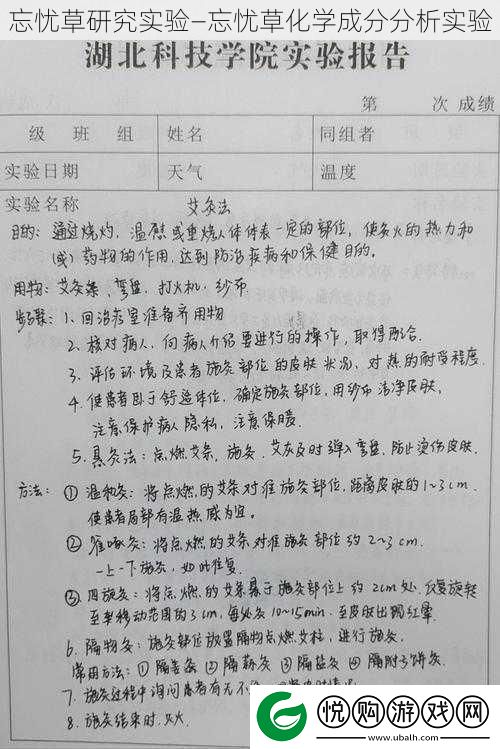 忘忧草研究实验—忘忧草化学成分分析实验
湖北科技学院实验报告
第 次 成绩
级 班 组 姓名 同组者
实验日期 天气 温度
实验名称 艾灸法
目的: 通过烧灼、温熨或熏烧人体体表一定的部位, 使灸火的热力和
(或) 药物的作用, 达到防治疾病和保健目的。
用物: 艾灸条、弯盘、打火机、纱布
步骤: 1. 回治疗室准备齐用物
2. 核对病人, 向病人介绍要进行的操作, 取得配合.
3. 评估环境及患者施灸部位的皮肤状况、对热的耐受程度.
4. 使患者卧于舒适体位, 确定施灸部位, 用纱布洁净皮肤,
注意保护病人隐私, 注意保暖.
5. 悬灸法: 点燃艾条, 施灸, 艾灰及时弹入弯盘, 防止烫伤皮肤.
方法: ① 温和灸: 将点燃的艾条对准施灸部位, 距离皮肤的1~3cm,
使患者局部有温热感为宜。
② 雀啄灸: 将点燃的艾条对准施灸部位约2~3cm.
一上一下施灸, 如此往复.
③ 回旋灸: 将点燃的艾条悬于施灸部位上约2cm处. 反复旋转
移动范围约3cm, 每处灸10~15min, 至皮肤出现红晕.
6. 隔物灸: 施灸部位放置隔物点燃艾柱, 进行施灸.
常用方法: ① 隔姜灸 ② 隔蒜灸 ③ 隔盐灸 ④ 隔附子饼灸.
7. 施灸过程中询问患者有无不
8. 施灸结束时, 灭火
悦购游戏网
www.ubalh.com